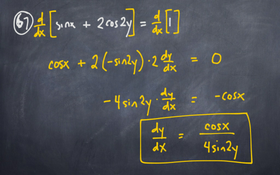 67) d/dx [sinx + 2cos2y] = d/dx [1]
cosx + 2(-sin2y)·2 dy/dx = 0
-4sin2y · dy/dx = -cosx
dy/dx = cosx/4sin2y